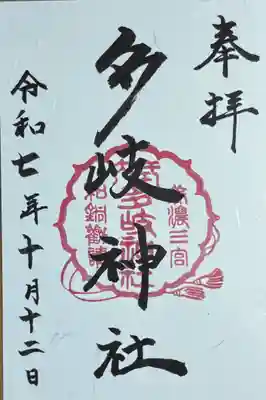 奉拝
多岐神社
美濃三宮
多岐神社
令和七年十月十二日